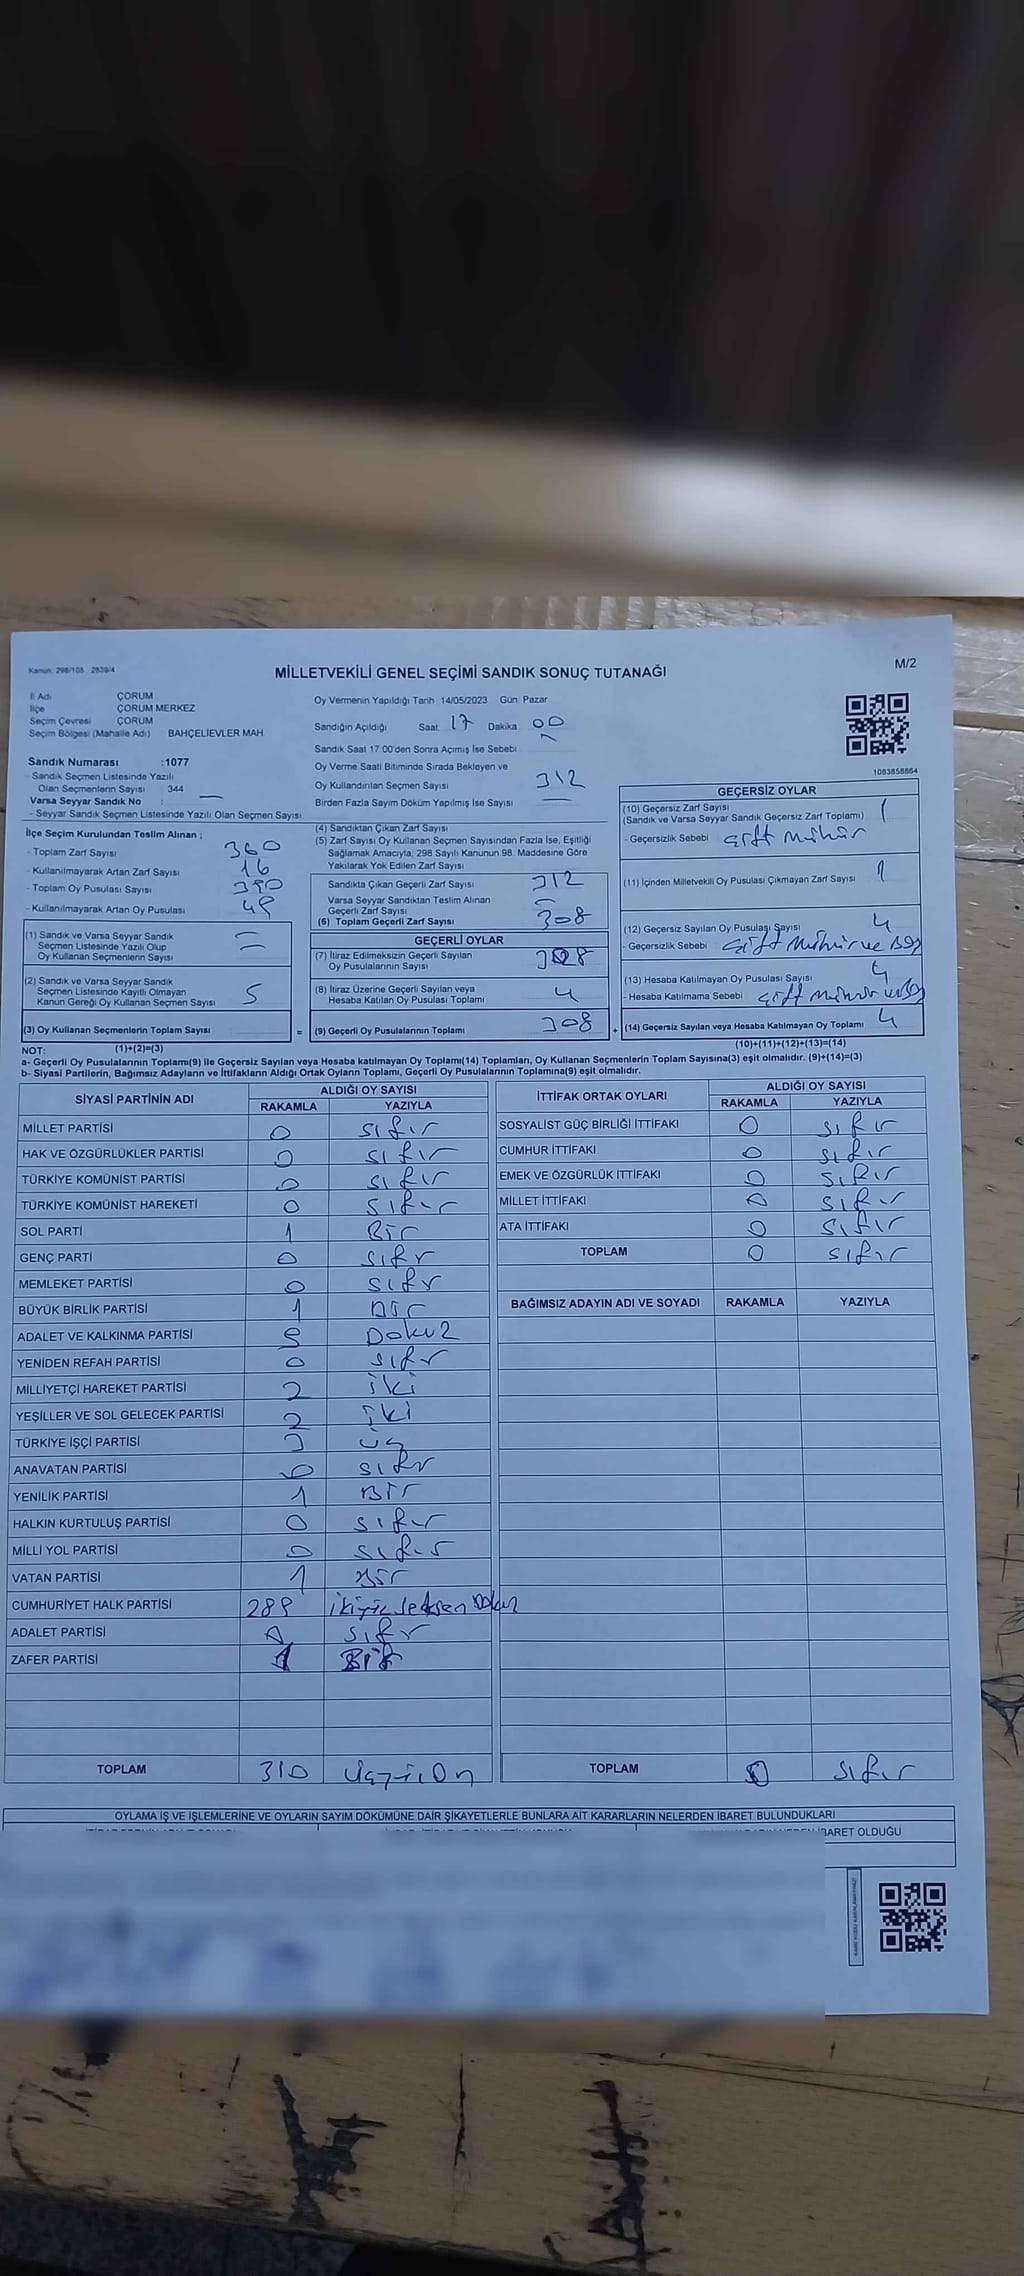 Kanun: 298/105 2839/4
MİLLETVEKİLİ GENEL SEÇİMİ SANDIK SONUÇ TUTANAĞI
M/2
İl Adı ÇORUM
İlçe ÇORUM MERKEZ
Seçim Çevresi ÇORUM
Seçim Bölgesi (Mahalle Adı) BAHÇELİEVLER MAH
Sandık Numarası :1077
- Sandık Seçmen Listesinde Yazılı
Olan Seçmenlerin Sayısı 344
Varsa Seyyar Sandık No : —
- Seyyar Sandık Seçmen Listesinde Yazılı Olan Seçmen Sayısı
Oy Vermenin Yapıldığı Tarih 14/05/2023 Gün Pazar
Sandığın Açıldığı Saat 17 Dakika 00
Sandık Saat 17 00'den Sonra Açımış İse Sebebi
Oy Verme Saati Bitiminde Sırada Bekleyen ve
Oy Kullandırılan Seçmen Sayısı 312
Birden Fazla Sayım Döküm Yapılmış İse Sayısı —
1083858864
İlçe Seçim Kurulundan Teslim Alınan ;
- Toplam Zarf Sayısı 360
- Kullanılmayarak Artan Zarf Sayısı 16
- Toplam Oy Pusulası Sayısı 390
- Kullanılmayarak Artan Oy Pusulası 49
(1) Sandık ve Varsa Seyyar Sandık
Seçmen Listesinde Yazılı Olup
Oy Kullanan Seçmenlerin Sayısı
(2) Sandık ve Varsa Seyyar Sandık
Seçmen Listesinde Kayıtlı Olmayan
Kanun Gereği Oy Kullanan Seçmen Sayısı 5
(3) Oy Kullanan Seçmenlerin Toplam Sayısı =
(1)+(2)=(3)
(4) Sandıktan Çıkan Zarf Sayısı
(5) Zarf Sayısı Oy Kullanan Seçmen Sayısından Fazla İse, Eşitliği
Sağlamak Amacıyla; 298 Sayılı Kanunun 98. Maddesine Göre
Yakılarak Yok Edilen Zarf Sayısı
Sandıkta Çıkan Geçerli Zarf Sayısı 312
Varsa Seyyar Sandıktan Teslim Alınan
Geçerli Zarf Sayısı —
(6) Toplam Geçerli Zarf Sayısı 308
GEÇERLİ OYLAR
(7) İtiraz Edilmeksizin Geçerli Sayılan
Oy Pusulalarının Sayısı 308
(8) İtiraz Üzerine Geçerli Sayılan veya
Hesaba Katılan Oy Pusulası Toplamı 4
(9) Geçerli Oy Pusulalarının Toplamı 308 +
GEÇERSİZ OYLAR
(10) Geçersiz Zarf Sayısı
(Sandık ve Varsa Seyyar Sandık Geçersiz Zarf Toplamı) 1
- Geçersizlik Sebebi çift mühür
(11) İçinden Milletvekili Oy Pusulası Çıkmayan Zarf Sayısı 1
(12) Geçersiz Sayılan Oy Pusulası Sayısı 4
- Geçersizlik Sebebi çift mühür ve Boş
(13) Hesaba Katılmayan Oy Pusulası Sayısı 4
- Hesaba Katılmama Sebebi çift mühür ve Boş
(14) Geçersiz Sayılan veya Hesaba Katılmayan Oy Toplamı 4
(10)+(11)+(12)+(13)=(14)
NOT:
a- Geçerli Oy Pusulalarının Toplamı(9) ile Geçersiz Sayılan veya Hesaba katılmayan Oy Toplamı(14) Toplamları, Oy Kullanan Seçmenlerin Toplam Sayısına(3) eşit olmalıdır. (9)+(14)=(3)
b- Siyasi Partilerin, Bağımsız Adayların ve İttifakların Aldığı Ortak Oyların Toplamı, Geçerli Oy Pusulalarının Toplamına(9) eşit olmalıdır.
SİYASİ PARTİNİN ADI ALDIĞI OY SAYISI
RAKAMLA YAZIYLA
MİLLET PARTİSİ 0 sıfır
HAK VE ÖZGÜRLÜKLER PARTİSİ 0 sıfır
TÜRKİYE KOMÜNİST PARTİSİ 0 sıfır
TÜRKİYE KOMÜNİST HAREKETİ 0 sıfır
SOL PARTİ 1 Bir
GENÇ PARTİ 0 sıfır
MEMLEKET PARTİSİ 0 sıfır
BÜYÜK BİRLİK PARTİSİ 1 Bir
ADALET VE KALKINMA PARTİSİ 9 Dokuz
YENİDEN REFAH PARTİSİ 0 sıfır
MİLLİYETÇİ HAREKET PARTİSİ 2 iki
YEŞİLLER VE SOL GELECEK PARTİSİ 2 iki
TÜRKİYE İŞÇİ PARTİSİ 3 üç
ANAVATAN PARTİSİ 0 sıfır
YENİLİK PARTİSİ 1 Bir
HALKIN KURTULUŞ PARTİSİ 0 sıfır
MİLLİ YOL PARTİSİ 0 sıfır
VATAN PARTİSİ 1 Bir
CUMHURİYET HALK PARTİSİ 289 ikiyüz seksen Dokuz
ADALET PARTİSİ 0 sıfır
ZAFER PARTİSİ 1 Bir
TOPLAM 310 üçyüz On
İTTİFAK ORTAK OYLARI ALDIĞI OY SAYISI
RAKAMLA YAZIYLA
SOSYALİST GÜÇ BİRLİĞİ İTTİFAKI 0 sıfır
CUMHUR İTTİFAKI 0 sıfır
EMEK VE ÖZGÜRLÜK İTTİFAKI 0 sıfır
MİLLET İTTİFAKI 0 sıfır
ATA İTTİFAKI 0 sıfır
TOPLAM 0 sıfır
BAĞIMSIZ ADAYIN ADI VE SOYADI RAKAMLA YAZIYLA
TOPLAM 0 sıfır
OYLAMA İŞ VE İŞLEMLERİNE VE OYLARIN SAYIM DÖKÜMÜNE DAİR ŞİKAYETLERLE BUNLARA AİT KARARLARIN NELERDEN İBARET BULUNDUKLARI
İBARET OLDUĞU